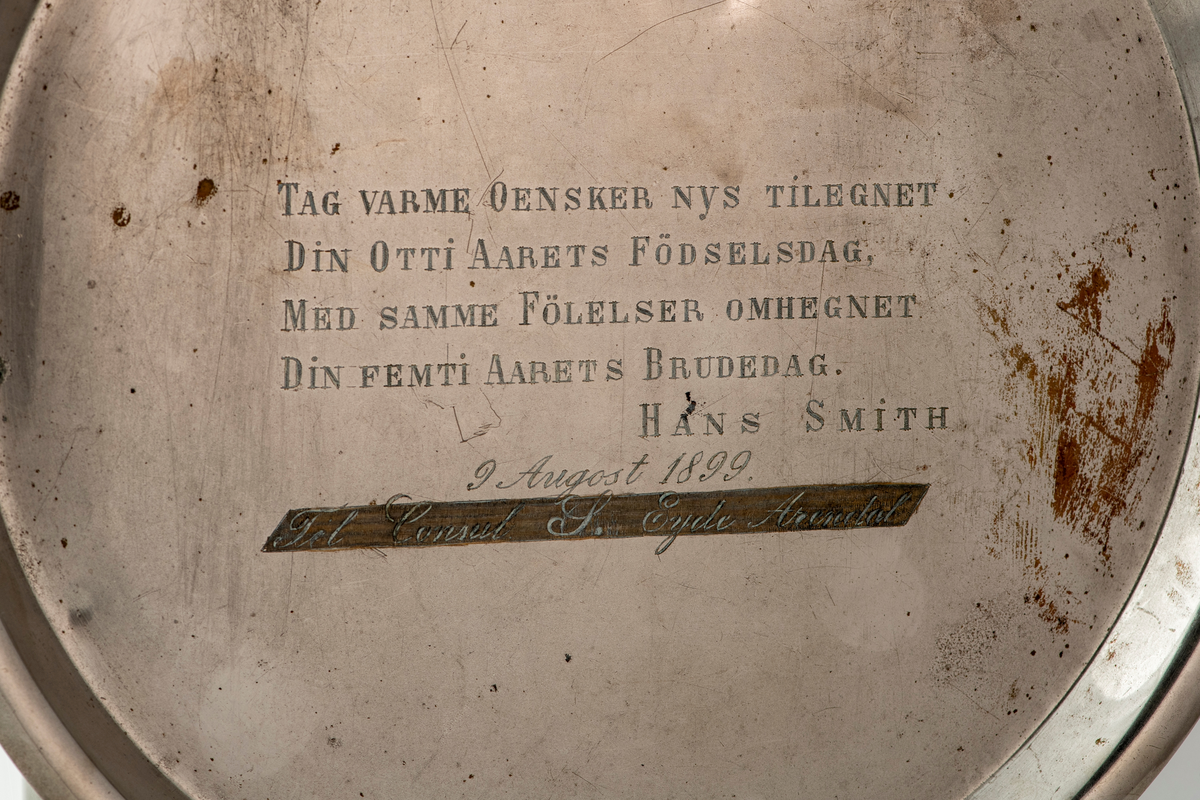 TAG VARME OENSKER NYS TILEGNET
DIN OTTI AARETS FÖDSELSDAG,
MED SAMME FÖLELSER OMHEGNET
DIN FEMTI AARETS BRUDEDAG.
HANS SMITH
9 August 1899.
Tel Consul S. Eyde Arendal